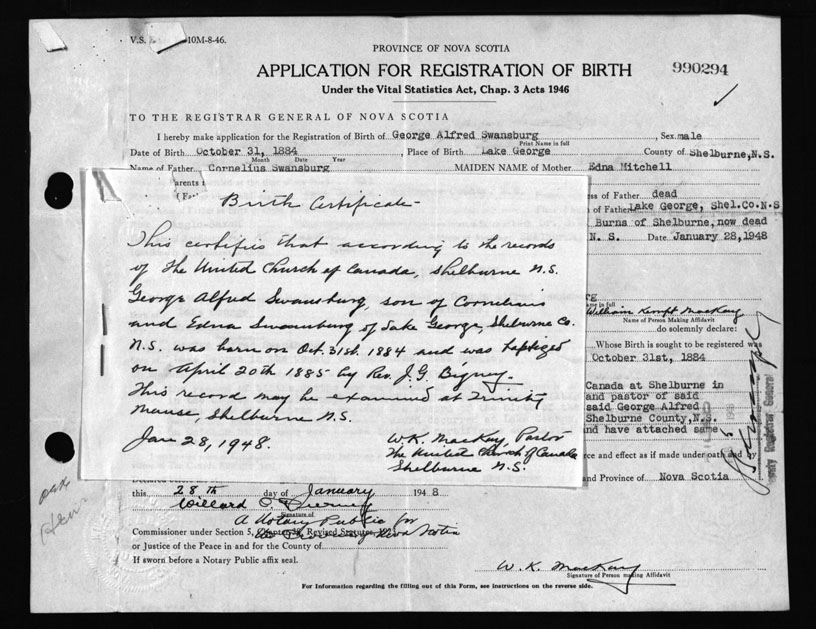 10M-8-46.
PROVINCE OF NOVA SCOTIA
APPLICATION FOR REGISTRATION OF BIRTH
990294
Under the Vital Statistics Act, Chap. 3 Acts 1946
TO THE REGISTRAR GENERAL OF NOVA SCOTIA
I hereby make application for the Registration of Birth of George Alfred Swansburg, Sex male
Print Name in full
Date of Birth October 31, 1884, Place of Birth Lake George County of Shelburne, N.S.
Month Date Year
Name of Father Cornelius Swansburg MAIDEN NAME of Mother Edna Mitchell
of Father dead
of Father Lake George, Shel.Co.N.S
Burns of Shelburne, now dead
N. S. Date January 28, 1948
Birth Certificate
This certifies that according to the records
of the United Church of Canada, Shelburne N.S.
George Alfred Swansburg, son of Cornelius
and Edna Swansburg of Lake George, Shelburne Co.
N.S. was born on Oct. 31st. 1884 and was baptized
on April 20th 1885 by Rev. J.G. Bigney.
This record may be examined at Trinity
Manse, Shelburne N.S.
Jan 28, 1948.
W.K. MacKay, Pastor
The United Church of Canada
Shelburne N.S.
William Kempt MacKay
Name of Person Making Affidavit
do solemnly declare:
Whose Birth is sought to be registered was
October 31st, 1884
Canada at Shelburne in
and pastor of said
said George Alfred
Shelburne County, N.S.
and have attached same
and effect as if made under oath and by
and Province of Nova Scotia
this 28th day of January 1948
Willard
Signature of
A Notary Public for
Commissioner under Section 5, Chapter 38, Revised Statutes, 1923
Nova Scotia
or Justice of the Peace in and for the County of
If sworn before a Notary Public affix seal.
W. K. MacKay
Signature of Person making Affidavit
For Information regarding the filling out of this Form, see instructions on the reverse side.
Registrar General